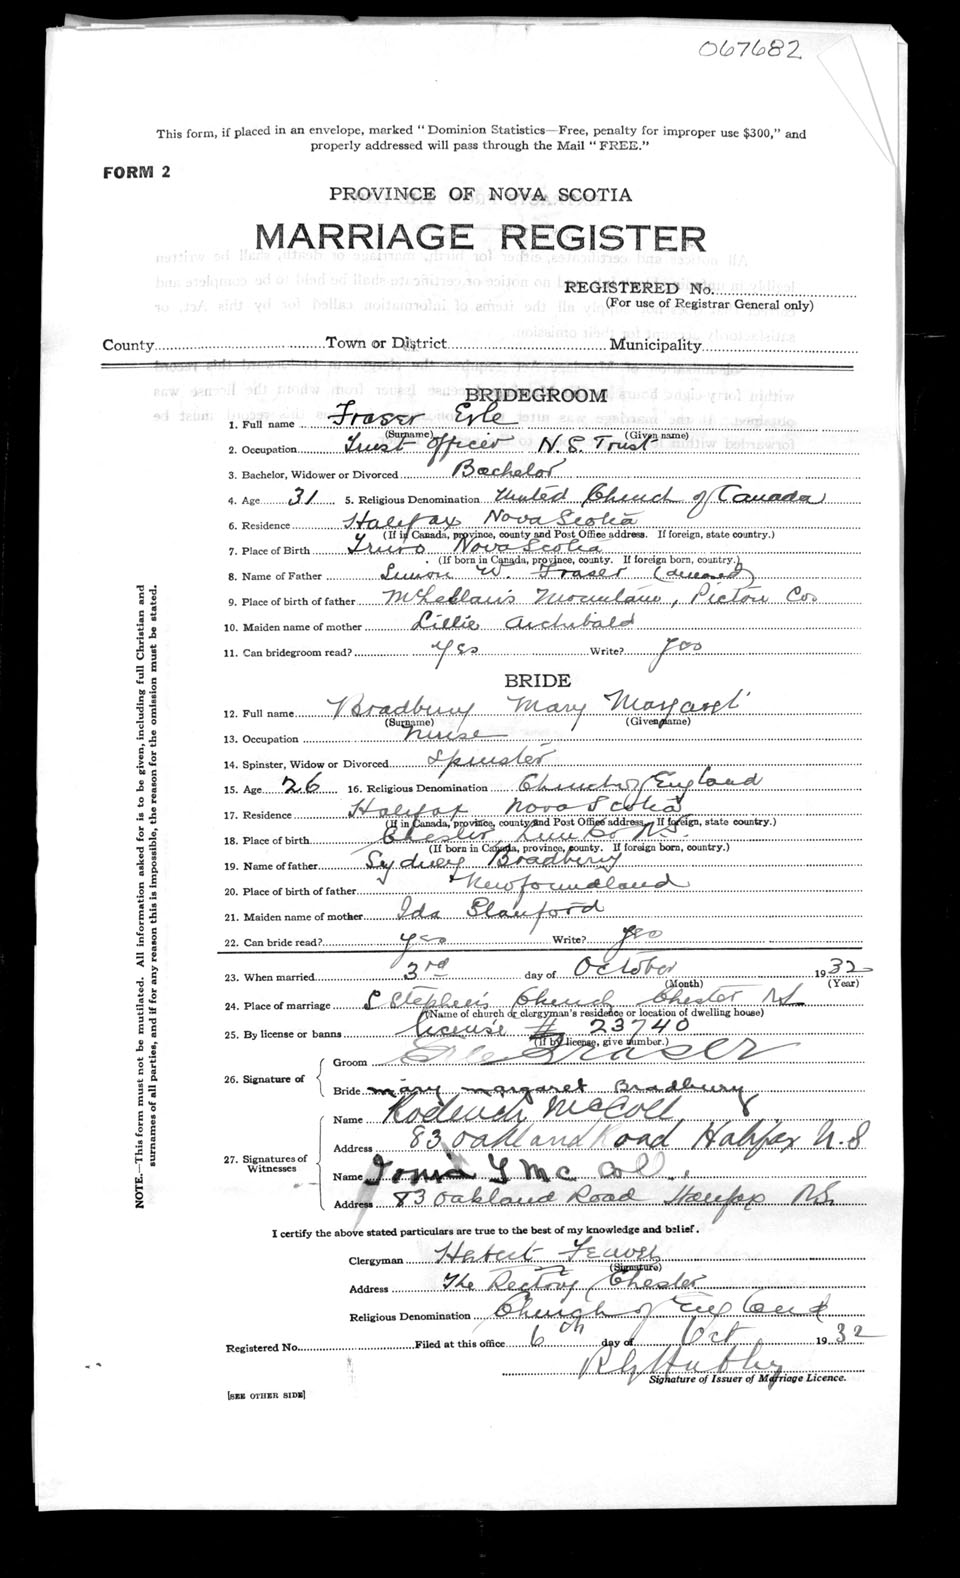 067682
This form, if placed in an envelope, marked "Dominion Statistics—Free, penalty for improper use $300," and
properly addressed will pass through the Mail "FREE."
FORM 2
PROVINCE OF NOVA SCOTIA
MARRIAGE REGISTER
REGISTERED No.
(For use of Registrar General only)
County Town or District Municipality
BRIDEGROOM
1. Full name Fraser Erle
(Surname) (Given name)
2. Occupation Trust Officer N.S. Trust
3. Bachelor, Widower or Divorced Bachelor
4. Age 31 5. Religious Denomination United Church of Canada
6. Residence Halifax Nova Scotia
(If in Canada, province, county and Post Office address. If foreign, state country.)
7. Place of Birth Truro Nova Scotia
(If born in Canada, province, county. If foreign born, country.)
8. Name of Father Simon W. Fraser (deceased)
9. Place of birth of father McLellan's Mountain, Pictou Co
10. Maiden name of mother Lillie Archibald
11. Can bridegroom read? Yes Write? Yes
BRIDE
12. Full name Bradbury Mary Margaret
(Surname) (Given name)
13. Occupation Nurse
14. Spinster, Widow or Divorced Spinster
15. Age 26 16. Religious Denomination Church of England
17. Residence Halifax Nova Scotia
(If in Canada, province, county and Post Office address. If foreign, state country.)
18. Place of birth Chester Lun Co N.S.
(If born in Canada, province, county. If foreign born, country.)
19. Name of father Sydney Bradbury
20. Place of birth of father Newfoundland
21. Maiden name of mother Ida Stanford
22. Can bride read? yes Write? yes
23. When married 3rd day of October 1932
(Month) (Year)
24. Place of marriage St Stephen's Church Chester NS
(Name of church or clergyman's residence or location of dwelling house)
25. By license or banns license # 23740
(If by license, give number.)
26. Signature of
Groom Erle Fraser
Bride Mary Margaret Bradbury
27. Signatures of Witnesses
Name Roderick McColl
Address 83 Oakland Road Halifax N.S
Name Y McColl
Address 83 Oakland Road Halifax N.S.
I certify the above stated particulars are true to the best of my knowledge and belief.
Clergyman Herbert
(Signature)
Address The Rectory Chester
Religious Denomination Church of England
Registered No. Filed at this office 6th day of Oct 1932
Signature of Issuer of Marriage Licence.
[SEE OTHER SIDE]
NOTE.—This form must not be mutilated. All information asked for is to be given, including full Christian and
surnames of all parties, and if for any reason this is impossible, the reason for the omission must be stated.